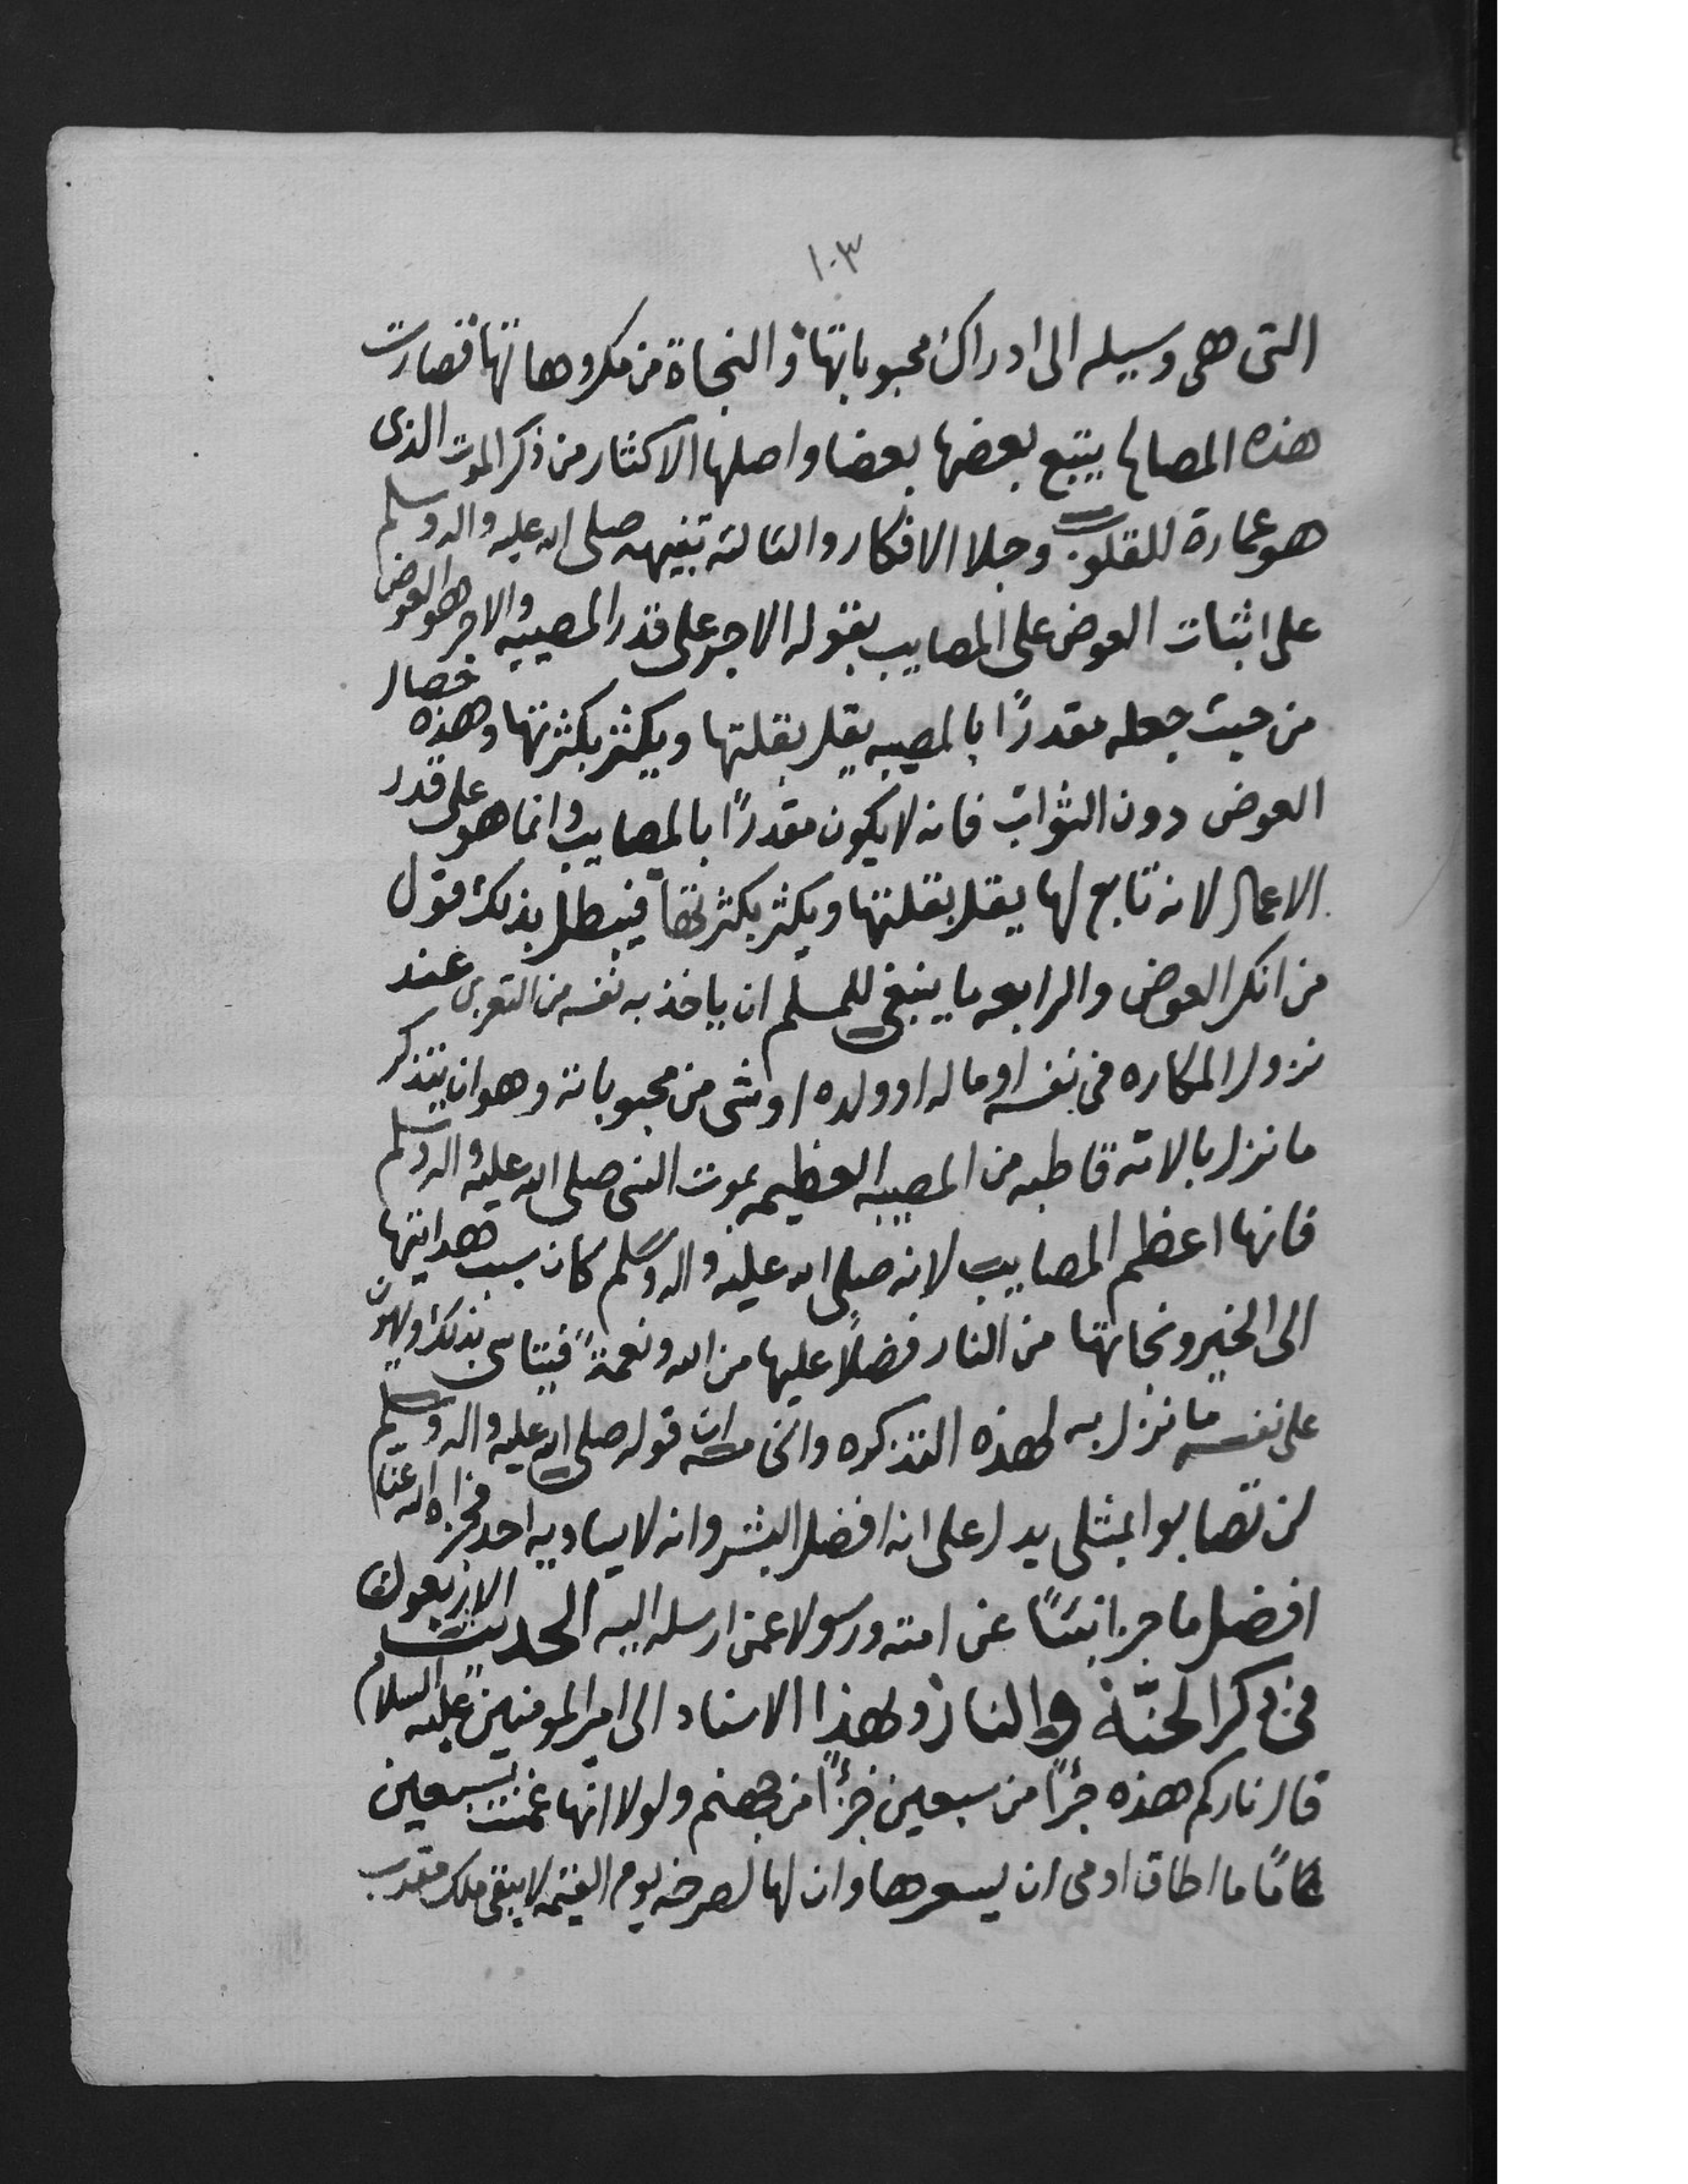 ١٠٣
التى هى وسيله الى ادراك محبوباتها و النجاة من مكروهاتها فصارت
هذه المصالح يتبع بعضها بعضا واصلها الاكثار من ذكر الموت الذى
هو عمارة للقلوب وجلا الافكار والثالثه تنبيهه صلى الله عليه واله وسلم
على اثبات العوض على المصايب بقوله الاجر على قدر المصيبه والاجر هو العوض
من حيث جعله مقدرًا بالمصيبه يقل بقلتها ويكثر بكثرتها وهذه خصال
العوض دون الثواب فانه لا يكون مقدرًا بالمصايب وانما هو على قدر
الاعمال لانه تابع لها يقل بقلتها ويكثر بكثرتها فيبطل بذلك قول
من انكر العوض والرابعه ما ينبغى للمسلم ان ياخذ به نفسه من التعزى عند
نزول المكاره فى نفسه او ماله او ولده او شى من محبوباته وهو ان يتذكر
ما نزل بالامه قاطبه من المصيبه العظيمه بموت النبى صلى الله عليه واله وسلم
فانها اعظم المصايب لانه صلى الله عليه واله وسلم كان سبب هدايتها
الى الخير ونجاتها من النار فضلًا عليها من الله ونعمةً فيتاسى بذلك ويهون
على نفسه ما نزل به لهذه التذكره والخامسه ان قوله صلى الله عليه واله وسلم
لن تصابوا بمثلى يدل على انه افضل البشر وانه لا يساويه احد فجزاه الله عنا
افضل ما جزا نبيًا عن امته ورسولا عمن ارسله اليه الحديث الاربعون
فى ذكر الجنّة والنار وبهذا الاسناد الى امير المومنين عليه السلام
قال ناركم هذه جزًا من سبعين جزءًا من جهنم ولولا انها غمست سبعين
ما اطاق ادمى ان يسعرها وان لها لصرخه يوم القيمه لا يبقى ملك مقرب